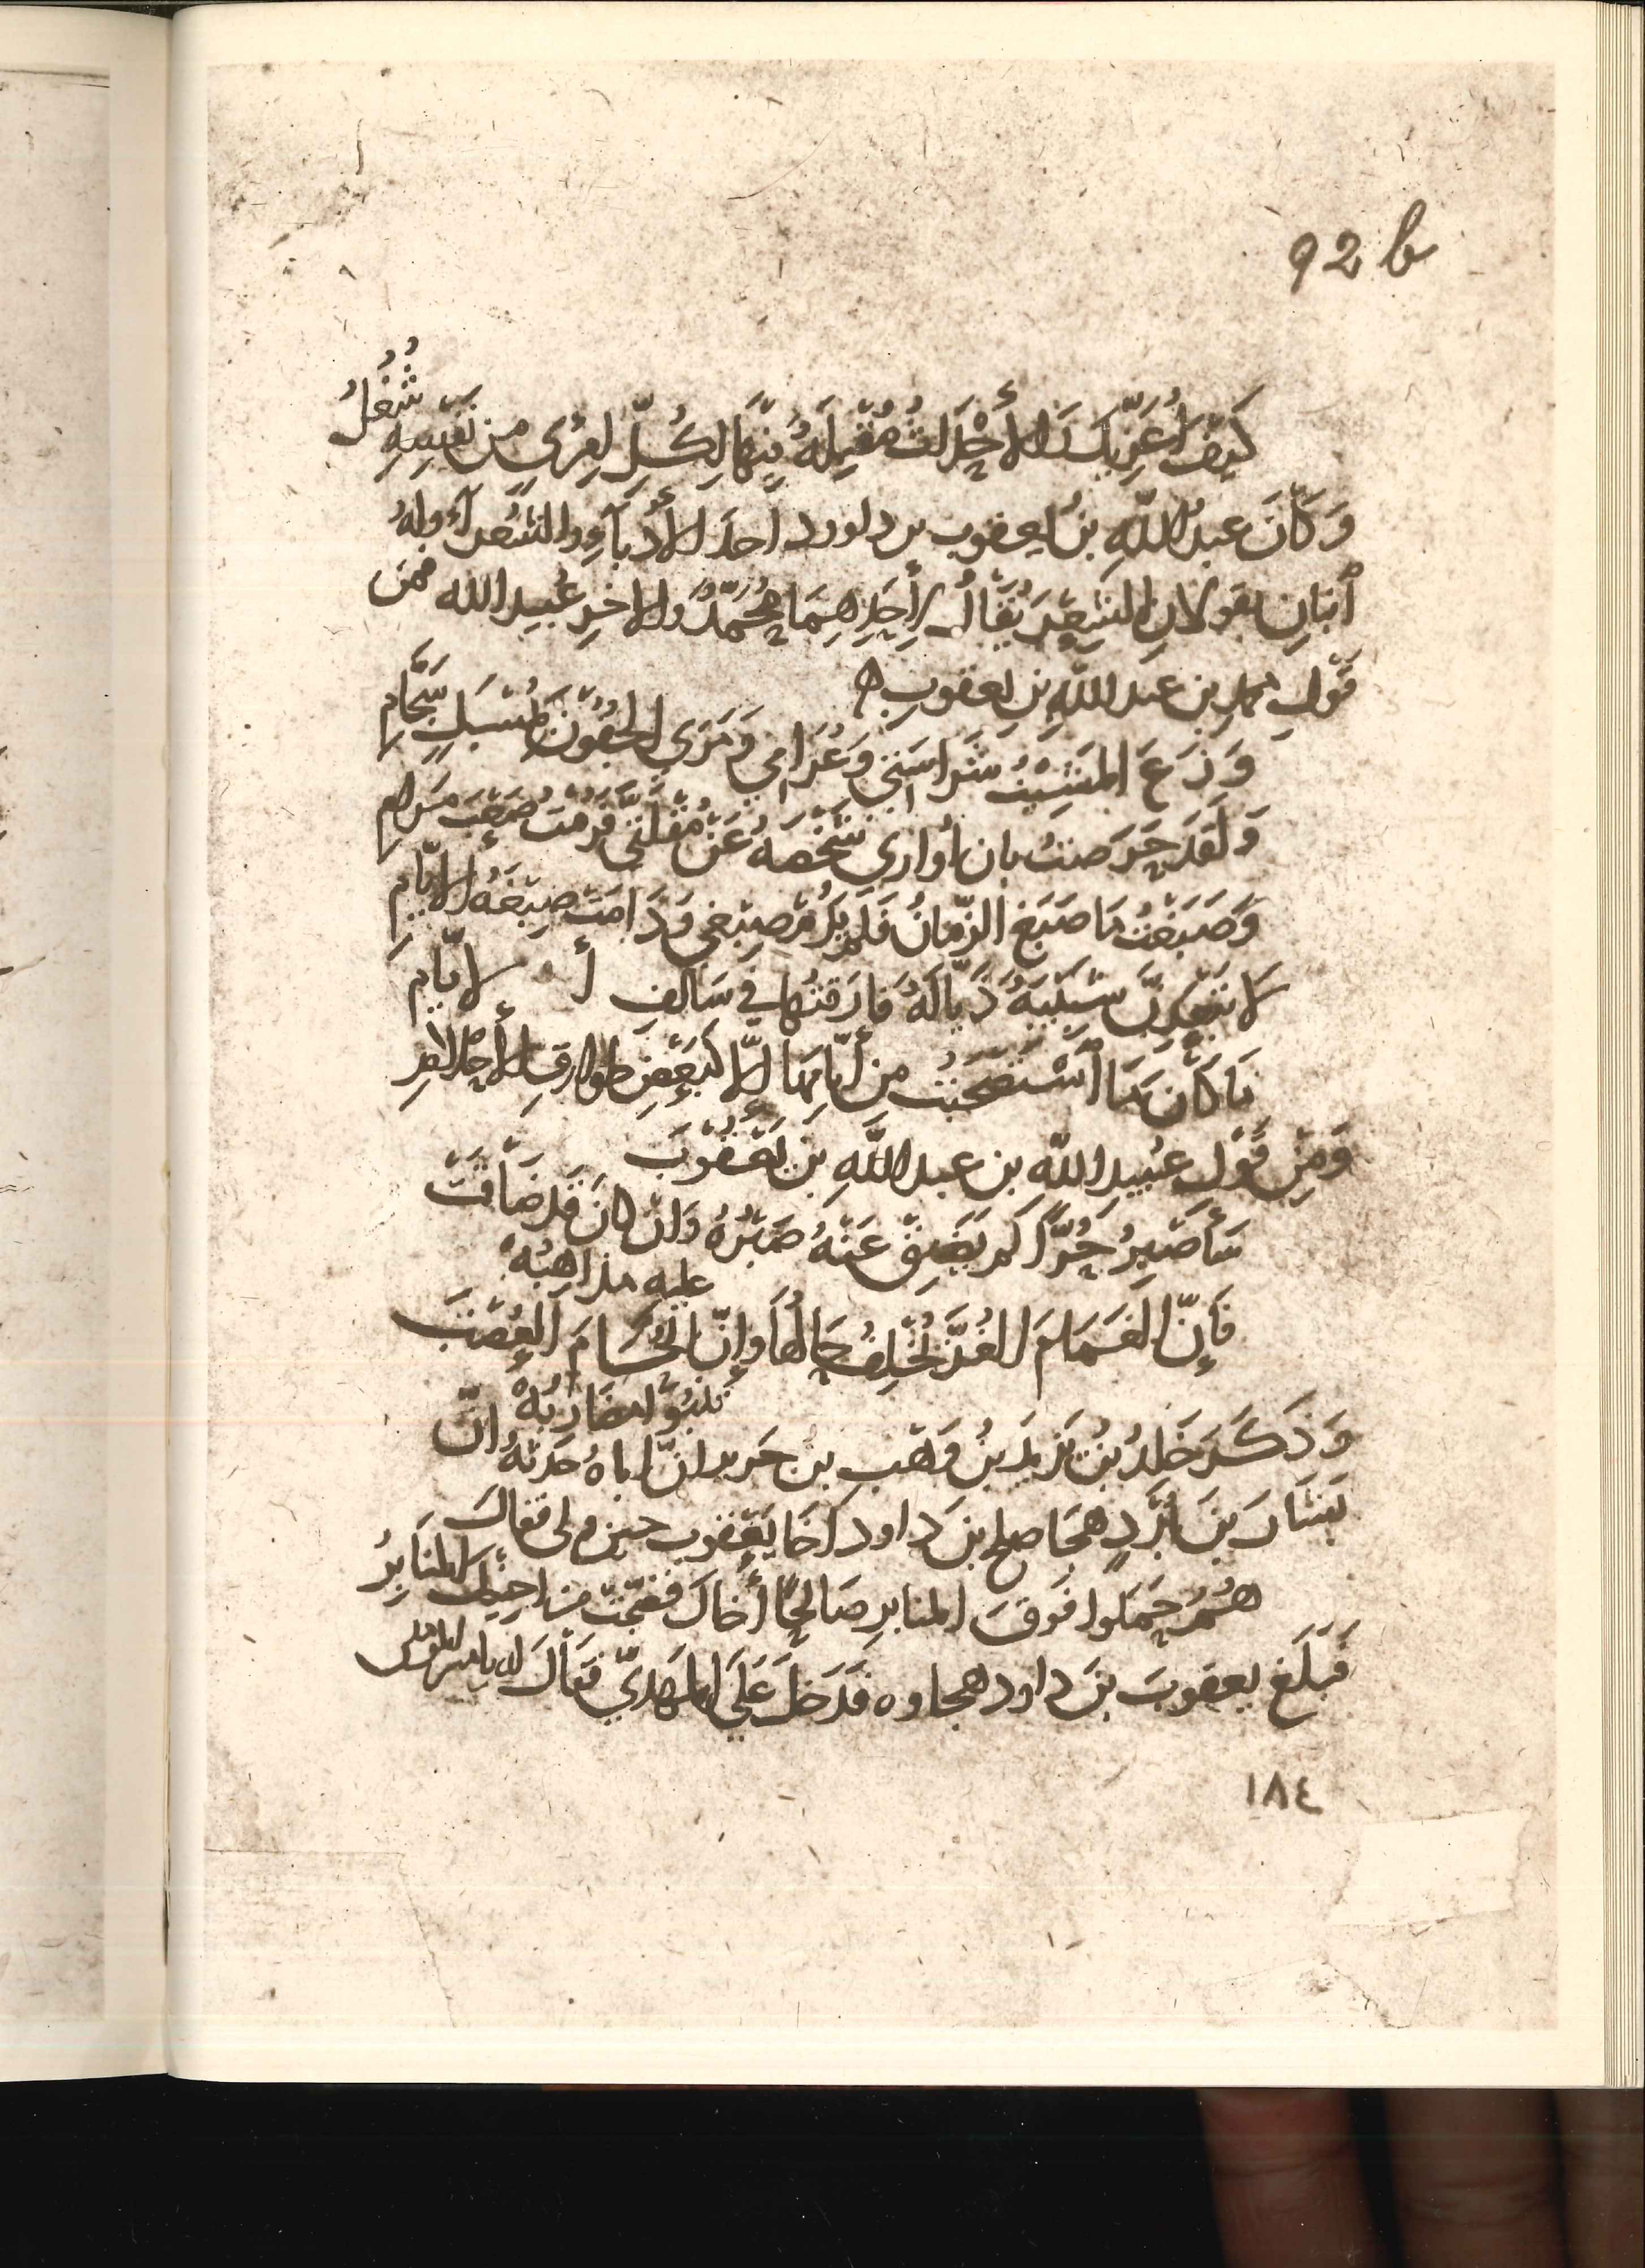 92 b
كَيْفَ أُعَزِّيكَ وَالأَحْدَاثُ مُقْبِلَةٌ فِيْهَا لِكُلِّ امْرِئٍ مِنْ نَفْسِهِ شُغُلُ
وَكَانَ عبدُ اللهِ بنُ يعقوب بن داود احَدَ الأُدَبَآءِ والشُّعَرَآءِ ولهُ
ٱبْنانِ يقولانِ الشِّعْرَ يُقَالُ لِأَحَدِهِمَا مُحَمَّدٌ والاخرِ عُبيد الله فمن
قَوْلِ محمد بن عبد اللهِ بنِ يعقوبِ ه
وَزَعَ المَشِيْبُ شَرَاسَتِي وَغَرَامِي وَمَرَى الجُفُوْنَ بِمُسْبَلٍ سَجَّامِ
وَلَقَدْ حَرَصْتُ بان أُوَارِي شَخْصَهُ عَنْ مُقْلَتَيَّ فَرُمْتُ صَعْبَ مَرَامِ
وَصَبَغْتُ مَا صَبَغَ الزَّمَانُ فَلَمْ يَدُمْ صِبْغِي وَدَامَتْ صِبْغَةُ الايَّامِ
لَا تَبْعُدَنَّ شَبِيْبَةٌ ذَيَّالَةٌ فَارَقْتُها فِي سَالِفِ الايَّامِ
مَا كَانَ مَا ٱسْتَصْحَبْتُ مِن أَيَّامِهَا إِلَّا كَبَعْضِ طوارقِ الأَحْلامِ
وَمِنْ قَوْلِ عُبيدِ الله بن عبد اللهِ بنِ يَعْقُوْبَ
سَأَصْبِرُ حُرًّا لم يَضِقْ عَنْهُ صَبْرُهُ وَان كانَ قد ضَاقَتْ
عليه مذاهِبُهْ
فَإِنَّ الغَمَامَ الغُرَّ يُخْلِفُ حَالُهَا وَإِنَّ الحُسَامَ العَضْبَ
تَنْبُو مَضَارِبُهْ
وَذَكَرَ خَلدُ بْنُ يَزِيدَ بنُ وَهْب بن جَرير انّ اباهُ حَدثهُ انّ
بَشَّارَ بنَ بُرْدٍ هجَا صلح بنَ داود اخَا يَعْقوب حين ولى فقالَ
هُمُ حَمَلُوا فَوقَ المنابرِ صَالِحًا أَخَاكَ فَضَجَّتْ من اخِيكَ المنَابِرُ
فَبَلَغ يعقوبَ بنَ داود هجاوه فدَخلَ عَلَى المهدِيّ فَقَالَ له يا امير المؤمنين
١٨٤